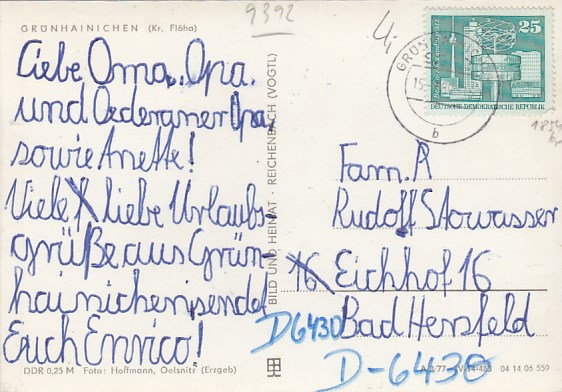 GRÜNHAINICHEN (Kr. Flöha)
9392
Liebe Oma, Opa.
und Oederaner Opa,
sowie Anette!
Viele liebe Urlaubs-
grüße aus Grün-
hainichen sendet
Euch Enrico!
DDR 0,25 M Foto: Hoffmann, Oelsnitz (Erzgeb)
BILD UND HEIMAT · REICHENBACH (VOGTL)
25
DEUTSCHE DEMOKRATISCHE REPUBLIK
b
Fam. R
Rudolf Stowasser
16 Eichhof 16
D6430 Bad Hersfeld
D-6430
04 14 06 559